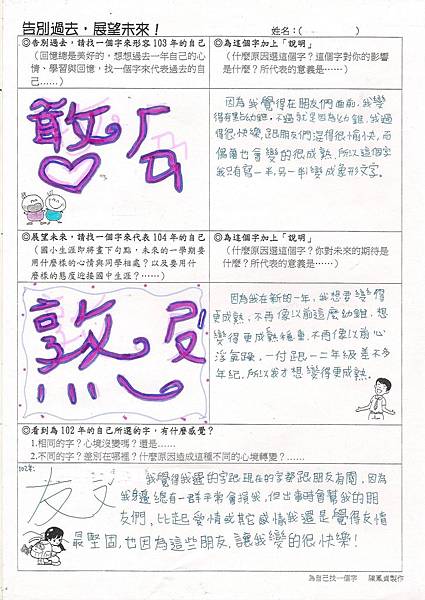 告別過去，展望未來！ 姓名：( )
◎告別過去，請找一個字來形容 103 年的自己
（回憶總是美好的，想想過去一年自己的心
情、學習與回憶，找一個字來代表過去的自
己……）
◎為這個字加上「說明」
（什麼原因選這個字？這個字對你的影響
是什麼？所代表的意義是……）
因為我覺得在朋友們面前，我變
得有點幼稚，不過就是因為幼稚，我過
得很快樂，跟朋友們混得很愉快，而
偶爾也會變的很成熟，所以這個字
我只有寫一半，另一半變成象形文字。
◎展望未來，請找一個字來代表 104 年的自己
（國小生涯即將畫下句點，未來的一學期要
用什麼樣的心情與同學相處？以及要用什
麼樣的態度迎接國中生涯？……）
◎為這個字加上「說明」
（什麼原因選這個字？你對未來的期待是
什麼？所代表的意義是……）
因為我在新的一年，我想要變得
更成熟，不再像以前這麼幼稚，想
變得更成熟穩重，不再像以前心
浮氣躁，一付跟一二年級差不多
年紀，所以我才想變得更成熟。
◎看到為 102 年的自己所選的字，有什麼感覺？
1.相同的字？心境沒變嗎？還是……
2.不同的字？差別在哪裡？什麼原因造成這種不同的心境轉變？……
102年:
友
我覺得我選的字跟現在的字都跟朋友有關，因為
我總有一群平常會損我，但出事時會幫我的朋
友們，比起愛情或其它感情我還是覺得友情
最堅固，也因為這些朋友，讓我變的很快樂！
為自己找一個字 陳鳳貞製作